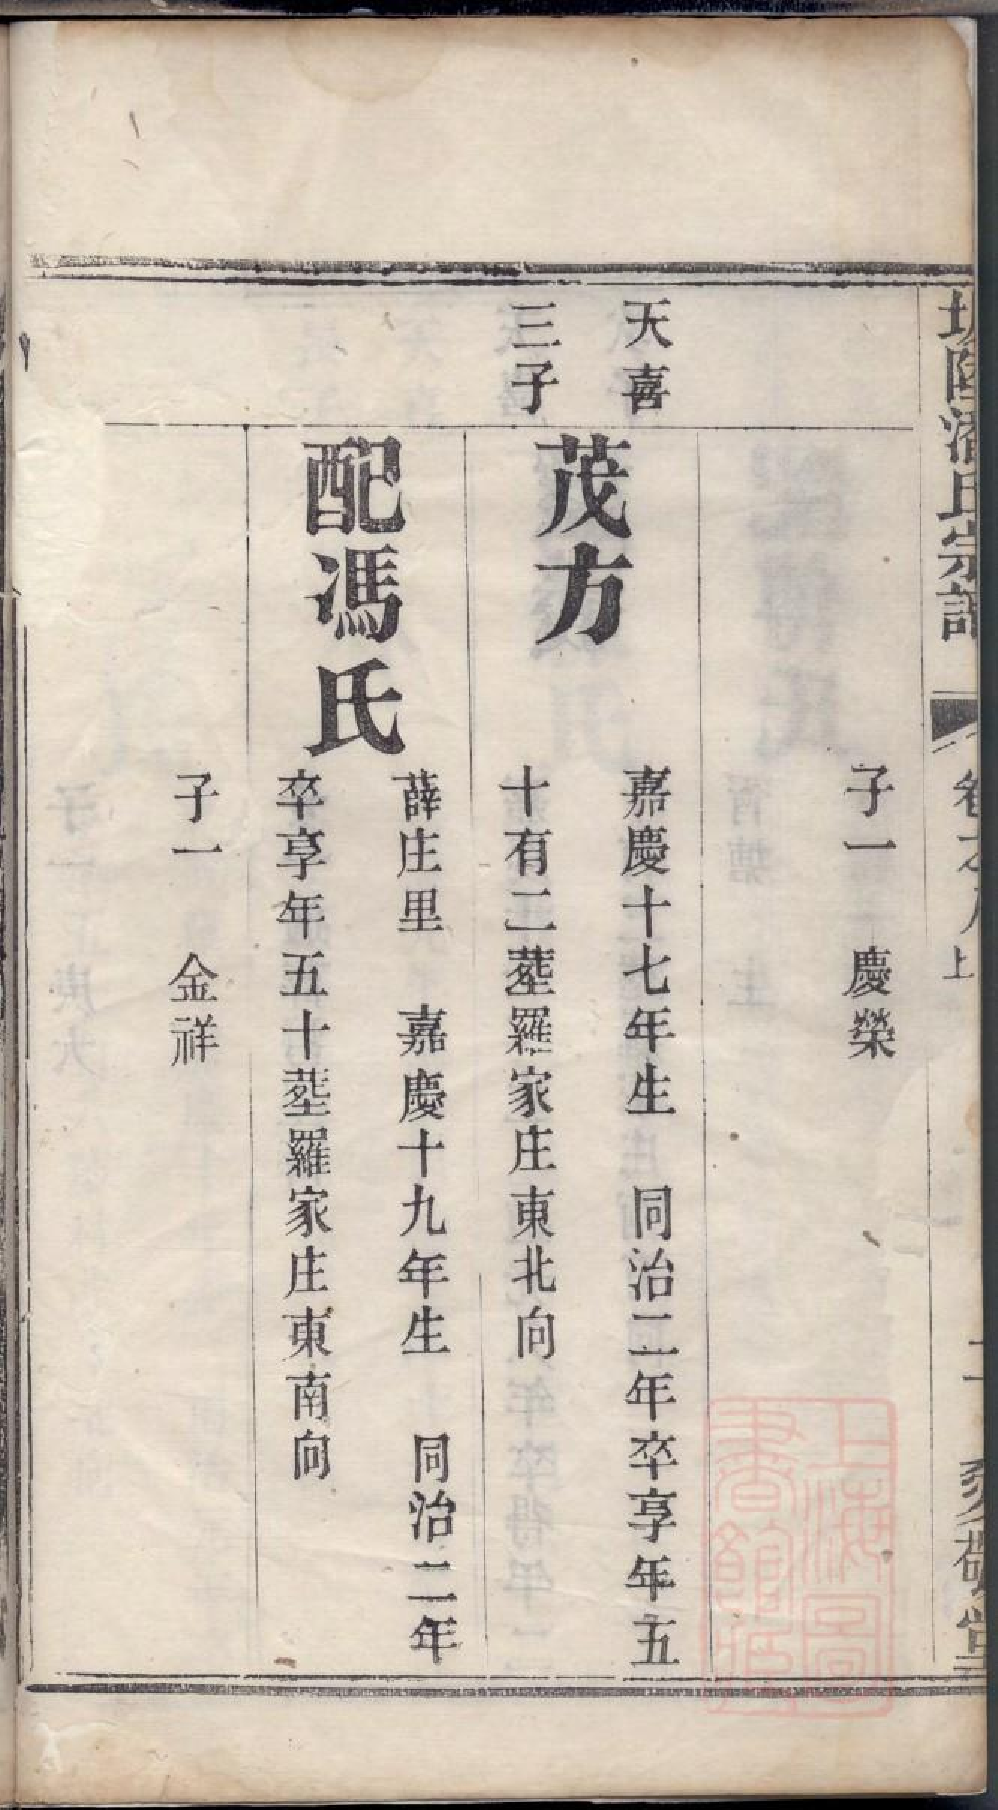 潘氏宗譜
卷之八上
敬堂
子一　慶榮
天喜
三子
茂方
嘉慶十七年生　同治二年卒享年五
十有二塟羅家庄東北向
配馮氏
薛庄里　嘉慶十九年生　同治二年
卒享年五十塟羅家庄東南向
子一　金祥
上海圖
書館藏